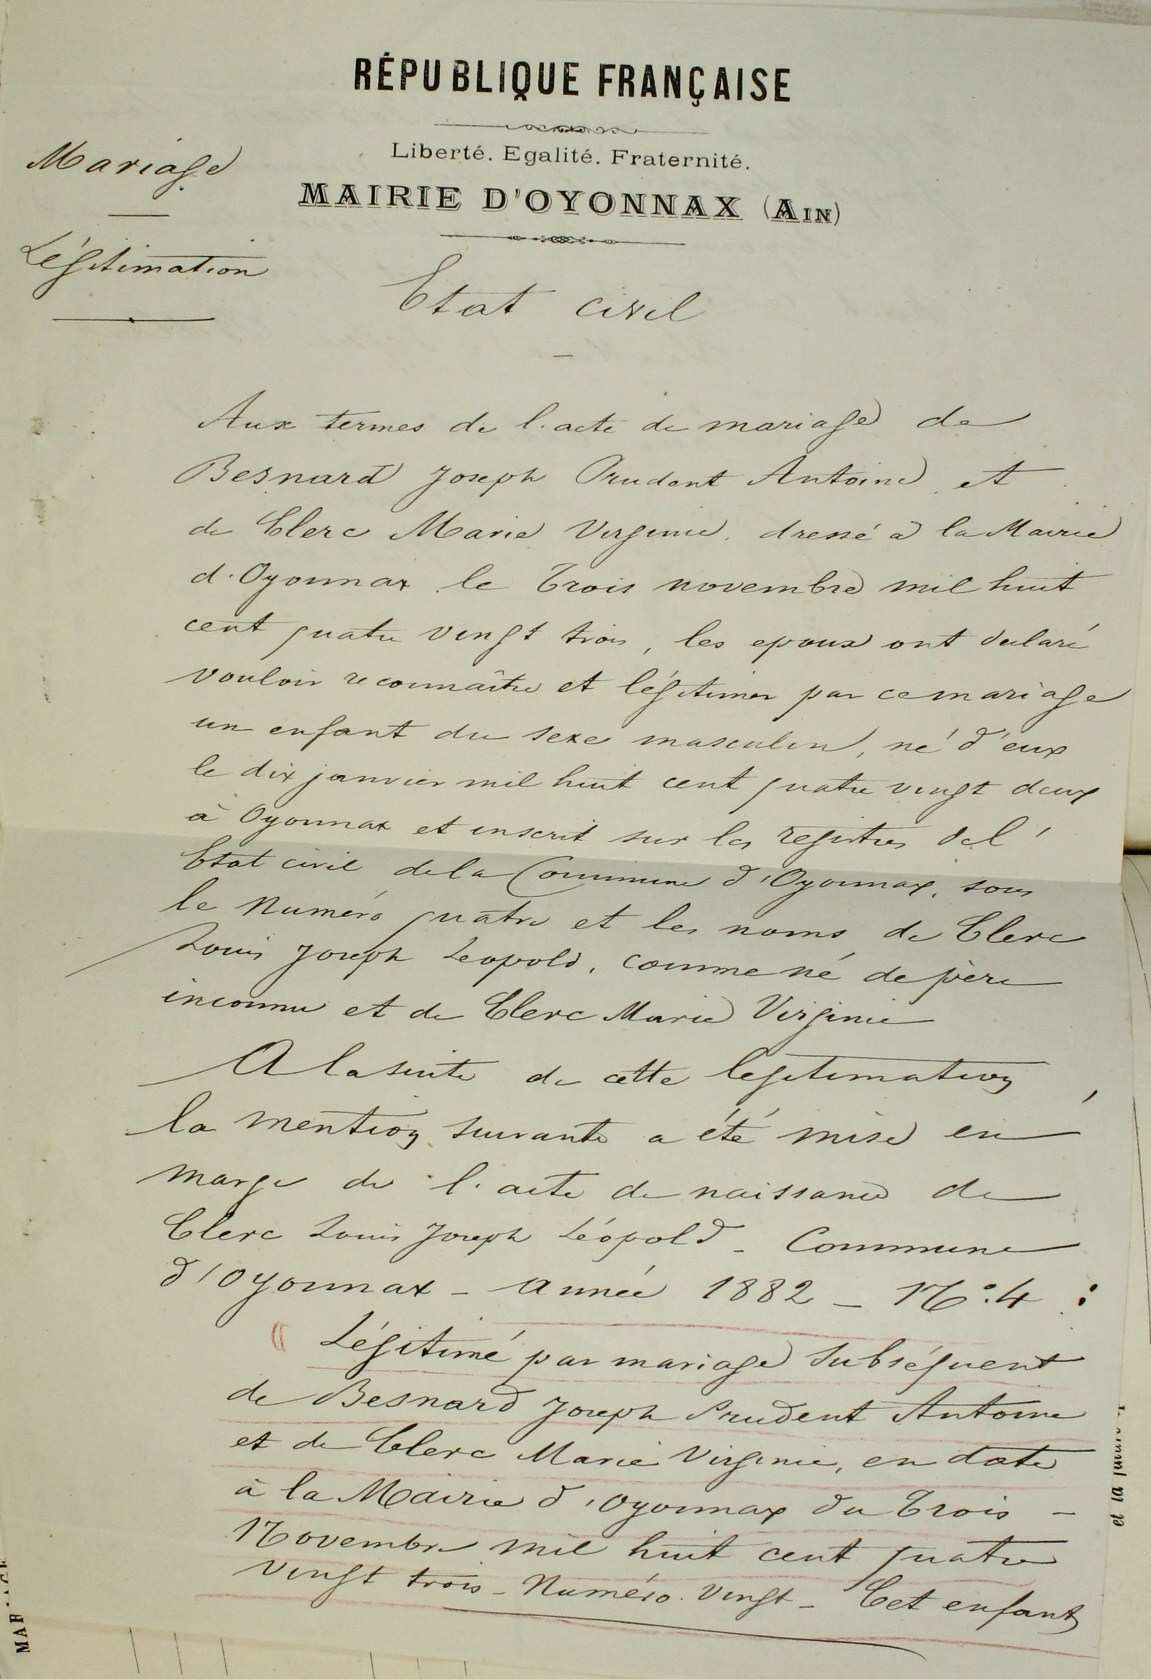 RÉPUBLIQUE FRANÇAISE
Liberté. Egalité. Fraternité.
MAIRIE D'OYONNAX (AIN)
Mariage
Légitimation
Etat civil
Aux termes de l'acte de mariage de
Besnard Joseph Prudent Antoine et
de Clerc Marie Virginie dressé à la Mairie
d'Oyonnax le Trois novembre mil huit
cent quatre vingt trois, les epoux ont declaré
vouloir reconnaître et légitimer par ce mariage
un enfant du sexe masculin, né d'eux
le dix janvier mil huit cent quatre vingt deux
à Oyonnax et inscrit sur les registres de l'
Etat civil de la Commune d'Oyonnax, sous
le Numéro quatre et les noms de Clerc
Louis Joseph Leopold, comme né de père
inconnu et de Clerc Marie Virginie
A la suite de cette légitimation,
la mention suivante a été mise en
marge de l'acte de naissance de
Clerc Louis Joseph Léopold - Commune
d'Oyonnax - année 1882 - N°. 4 :
« Légitimé par mariage subséquent
de Besnard Joseph Prudent Antoine
et de Clerc Marie Virginie, en date
à la Mairie d'Oyonnax du Trois -
Novembre mil huit cent quatre
vingt trois - Numéro vingt - Cet enfant
et la